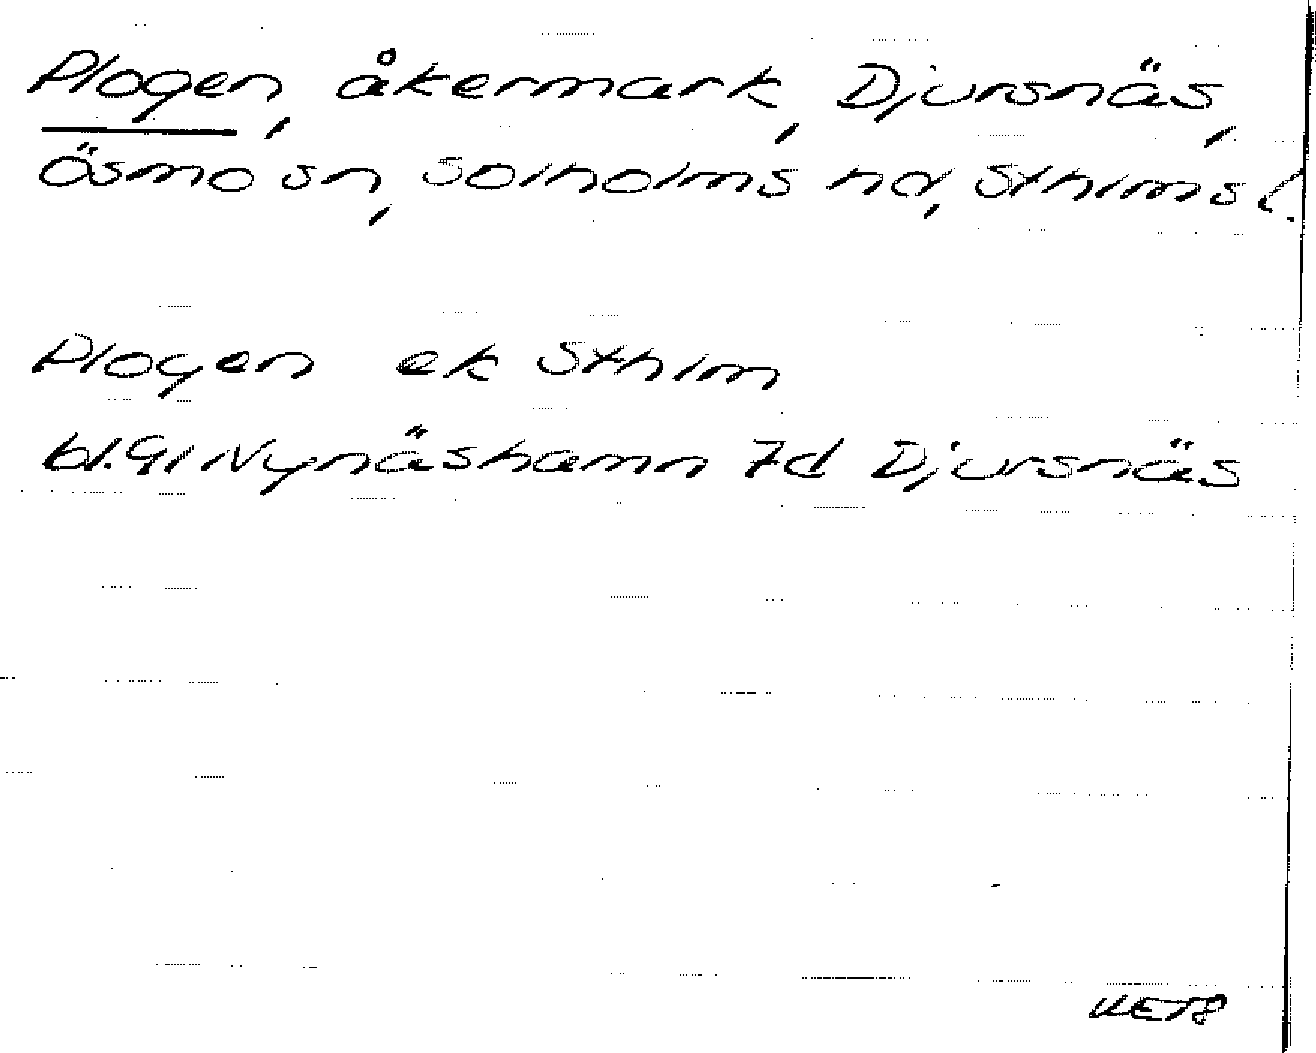 Plogen, åkermark, Djursnäs,
Ösmo sn, Solholms hd, Sthlms l.
Plogen ek Sthlm
bl. 9I Nynäshamn 7d Djursnäs